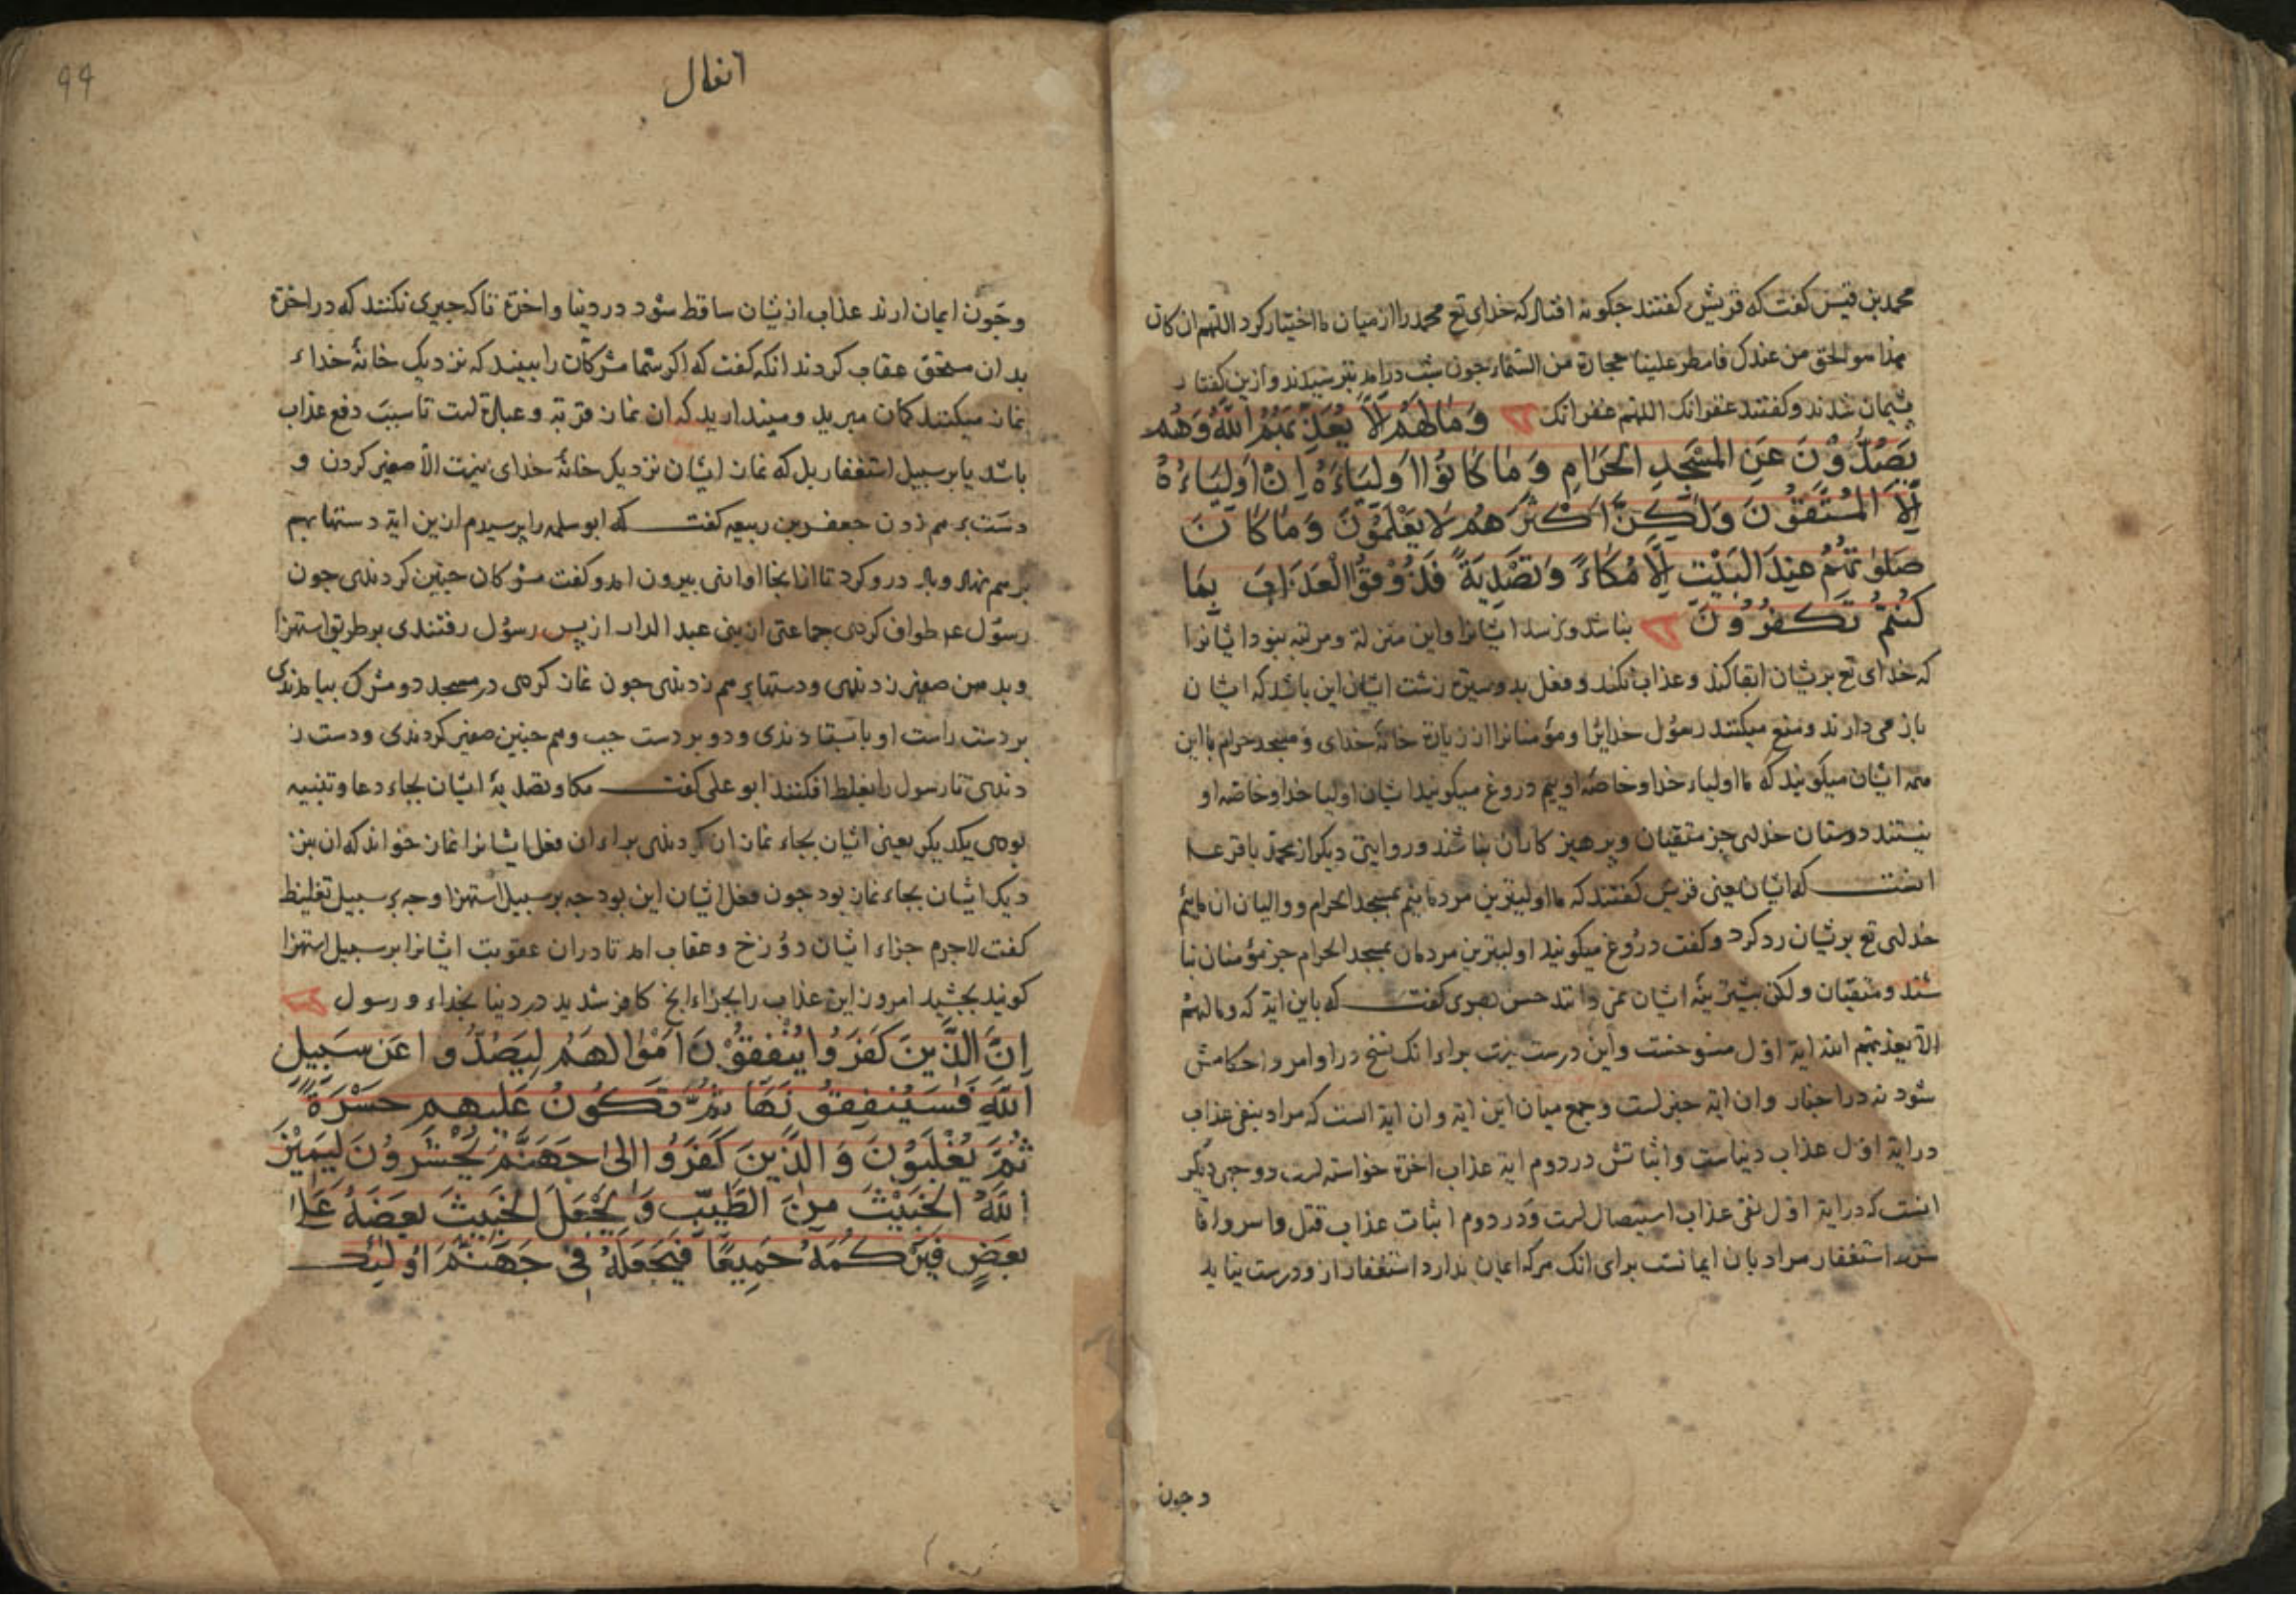 محمد بن قیس کفت که قریش کفتند جکونه افتاد که خدای تع محمد را از میان ما اختیار کرد اللهم ان کان
هذا هو الحق من عندک فامطر علینا حجارة من السماء جون شب درامد بترسیدند و ازین کفتار
بشیمان شدند و کفتند غفرانک اللهم غفرانک وَمَا لَهُمْ اَلَّا يُعَذِّبَهُمُ اللّٰهُ وَهُمْ
يَصُدُّوْنَ عَنِ المَسْجِدِ الْحَرَامِ وَمَا كَانُوْا اَوْلِيَاءَهُ اِنْ اَوْلِيَاءُهُ
اِلَّا الْمُتَّقُوْنَ وَلٰكِنَّ اَكْثَرَهُمْ لَا يَعْلَمُوْنَ وَمَا كَانَ
صَلٰوتُهُمْ عِنْدَ الْبَيْتِ اِلَّا مُكَاءً وَتَصْدِيَةً فَذُوْقُوا الْعَذَابَ بِمَا
كُنْتُمْ تَكْفُرُوْنَ نباشد و نرسد ایشانرا و این منزلة و مرتبه نبود ایشانرا
که خدای تع بریشان ابقا کند و عذاب نکند و فعل بد و سیرة زشت ایشان این باشد که ایشان
باز می دارند و منع میکنند رسول خدایرا و مؤمنانرا از زیارة خانۀ خدای و مسجد حرام با این
همه ایشان میکویند که ما اولیاء خدا و خاصۀ اوییم دروغ میکویند ایشان اولیا خدا و خاصۀ او
نیستند دوستان خدای جز متقیان و برهیز کاران نباشند و روایتی دیکر از محمد باقر ع
انست که ایشان یعنی قریش کفتند که ما اولیترین مردمانیم بمسجد الحرام و والیان ان ماییم
خدای تع بریشان رد کرد و کفت دروغ میکویند اولیترین مردمان بمسجد الحرام جز مؤمنان نبا
شند و متقیان و لکن بیشترینۀ ایشان نمی دانند حسن بصری کفت که باین ایة که و ما لهم
الا یعذبهم الله ایة اول منسوخست و این درست نیست براء انک نسخ در اوامر و احکامش
شود نه در اخبار و ان ایة خبر است و جمع میان این ایة و ان ایة انست که مراد بنفی عذاب
در ایة اول عذاب دنیاست و اثباتش در دوم ایة عذاب اخرة خواسته است و وجهی دیکر
انست که در ایة اول نفی عذاب استیصال است و در دوم اثبات عذاب قتل و اسر و اما
استغفار مراد بان ایمانست برای انک هر که ایمان ندارد استغفار ازو درست نیاید
وجون
انفال
٩٩
وجون ایمان ارند عذاب ازیشان ساقط شود در دنیا و اخرة تا که جیزی نکنند که در اخرة
بدان مستحق عقاب کردند انکه کفت که اکر شما مشرکان را ببینید که نزدیک خانۀ خداء
نماز میکنند کمان مبرید و مپندارید که ان نماز قربة و عبادة است تا سبب دفع عذاب
باشد یا بر سبیل استغفار بل که نماز ایشان نزدیک خانۀ خدای نیست الا صفیر کردن و
دست بر هم زدن جعفر بن ربیعه کفت که ابو سلمه را پرسیدم ازین ایة دستها بهم
بر هم نهاد و باد درو کرد تا از انجا اوازی بیرون امد و کفت مشرکان جنین کردندی جون
رسول ع طواف کردی جماعتی از بنی عبد الدار از پس رسول رفتندی بر طریق استهزا
و بدهن صفیر زدندی و دستها بر هم زدندی جون نماز کردی در مسجد دو مشرک بیامدندی
بر دست راست او باستادندی و دو بر دست جب و هم جنین صفیر کردندی و دست ز
دندی تا رسول را بغلط افکنند ابو علی کفت مکا و تصدیۀ ایشان بجاء دعا و تنبیه
بودی یکدیکر یعنی ایشان بجاء نماز ان کردندی براء ان فعل ایشانرا نماز خواند که ان بنز
دیک ایشان بجاء نماز بود جون فعل ایشان این بود جه بر سبیل استهزا و جه بر سبیل تغلیظ
کفت لاجرم جزاء ایشان دوزخ و عقاب امد تا دران عقوبت ایشانرا بر سبیل استهزا
کویند بجشید امروز این عذاب را بجزاء انج کافر شدید در دنیا بخداء و رسول
اِنَّ الَّذِيْنَ كَفَرُوْا يُنْفِقُوْنَ اَمْوَالَهُمْ لِيَصُدُّوا عَنْ سَبِيْلِ
اللّٰهِ فَسَيُنْفِقُوْنَهَا ثُمَّ تَكُوْنُ عَلَيْهِمْ حَسْرَةً
ثُمَّ يُغْلَبُوْنَ وَالَّذِيْنَ كَفَرُوْا اِلٰى جَهَنَّمَ يُحْشَرُوْنَ لِيَمِيْزَ
اللّٰهُ الْخَبِيْثَ مِنَ الطَّيِّبِ وَيَجْعَلَ الْخَبِيْثَ بَعْضَهُ عَلٰى
بَعْضٍ فَيَرْكُمَهُ جَمِيْعًا فَيَجْعَلَهُ فِىْ جَهَنَّمَ اُولٰئِكَ